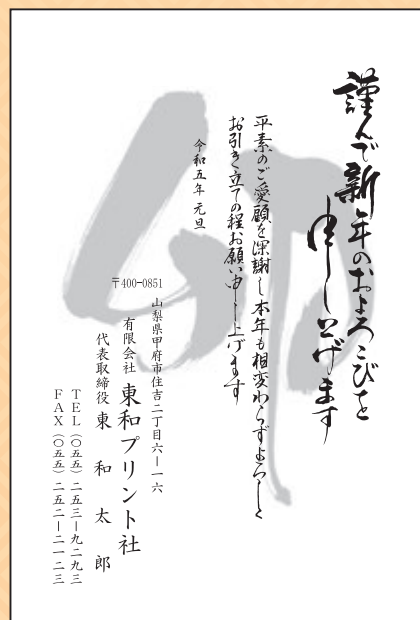 卯
謹んで新年のおよろこびを
申し上げます
平素のご愛顧を深謝し本年も相変わらずよろしく
お引き立ての程お願い申し上げます
令和五年 元旦
〒400-0851
山梨県甲府市住吉二丁目六ー一六
有限会社 東和プリント社
代表取締役 東 和 太 郎
TEL(〇五五)二五三ー九二九三
FAX(〇五五)二五二ー二一二三